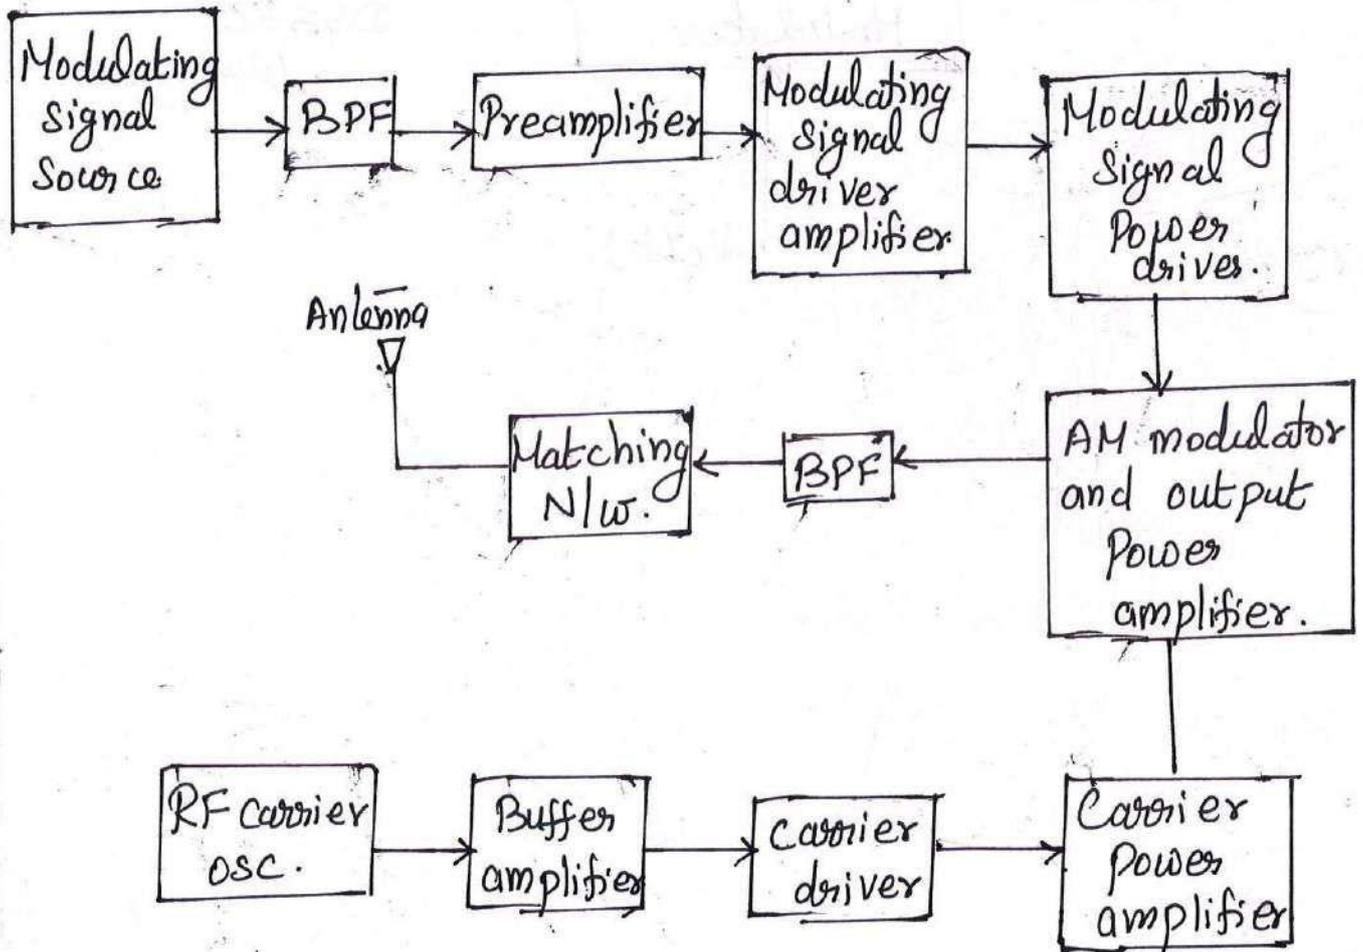 Modulating
signal
source
BPF
Preamplifier
Modulating
signal
driver
amplifier.
Modulating
signal
Power
driver.
Antenna
Matching
N/w.
BPF
AM modulator
and output
Power
amplifier.
RF carrier
osc.
Buffer
amplifier
Carrier
driver
Carrier
power
amplifier